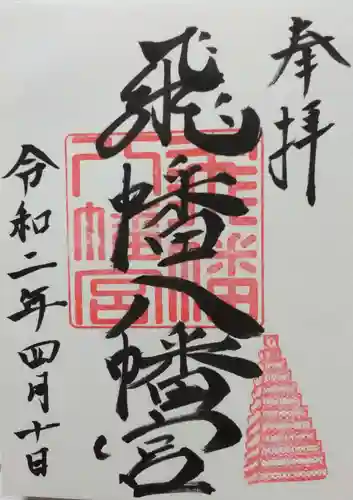 奉拝
飛幡八幡宮
令和二年四月十日